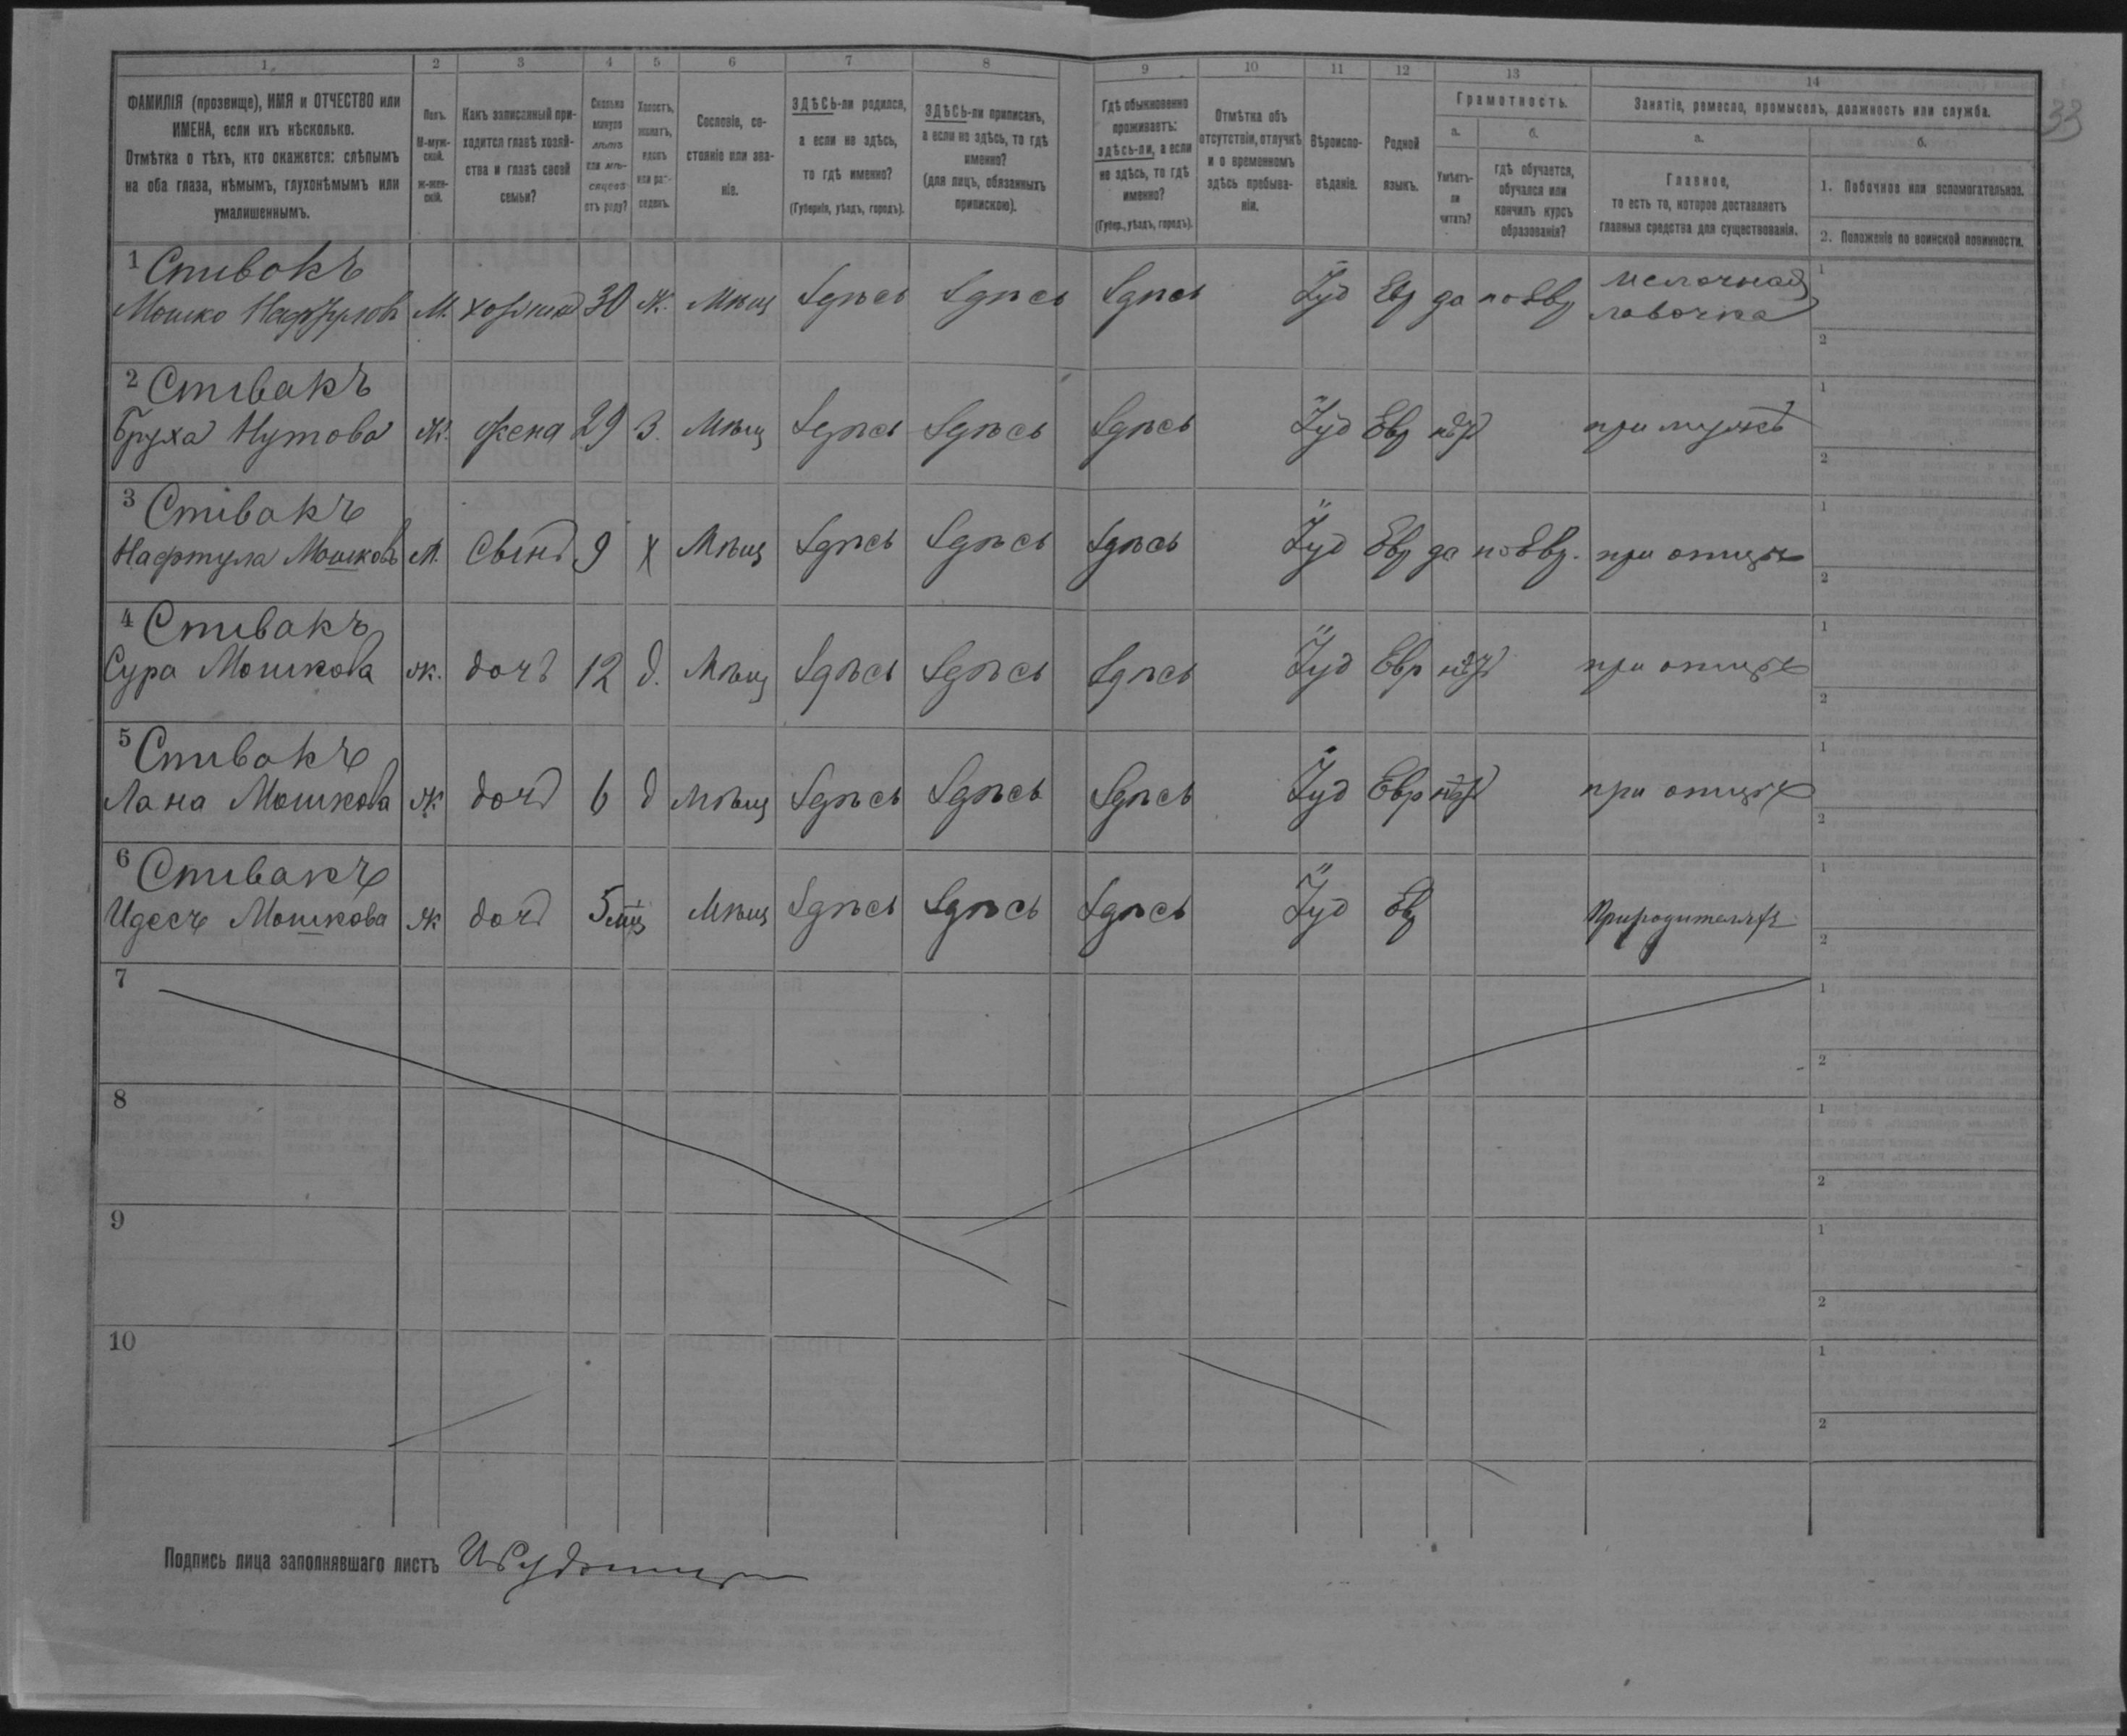 33
1 2 3 4 5 6 7 8 9 10 11 12 13 14
ФАМИЛІЯ (прозвище), ИМЯ и ОТЧЕСТВО или
ИМЕНА, если ихъ нѣсколько.
Отмѣтка о тѣхъ, кто окажется: слѣпымъ
на оба глаза, нѣмымъ, глухонѣмымъ или
умалишеннымъ.
Полъ.
М-муж-
ской.
Ж-жен-
скій.
Какъ записанный при-
ходится главѣ хозяй-
ства и главѣ своей
семьи?
Сколько
минуло
лѣтъ
или мѣ-
сяцевъ
отъ роду?
Холостъ,
женатъ,
вдовъ
или раз-
веденъ.
Сословіе, со-
стояніе или зва-
ніе.
ЗДѢСЬ-ли родился,
а если не здѣсь,
то гдѣ именно?
(Губернія, уѣздъ, городъ).
ЗДѢСЬ-ли приписанъ,
а если не здѣсь, то гдѣ
именно?
(для лицъ, обязанныхъ
припискою).
Гдѣ обыкновенно
проживаетъ:
здѣсь-ли, а если
не здѣсь, то гдѣ
именно?
(Губер., уѣздъ, городъ).
Отмѣтка объ
отсутствіи, отлучкѣ
и о временномъ
здѣсь пребыва-
ніи.
Вѣроиспо-
вѣданіе.
Родной
языкъ.
Грамотность.
а.
Умѣетъ-
ли
читать?
б.
гдѣ обучается,
обучался или
кончилъ курсъ
образованія?
Занятіе, ремесло, промыселъ, должность или служба.
а.
Главное,
то есть то, которое доставляетъ
главныя средства для существованія.
б.
1. Побочное или вспомогательное.
2. Положеніе по воинской повинности.
1 Спивокъ
Мошко М. 30 Ж. Мѣщ Здѣсь Здѣсь Здѣсь Іуд Евр да по Евр мелочная
лавочка 1
2
2 Спивакъ
Бруха Нутова Ж. жена 29 З. Мѣщ Здѣсь Здѣсь Здѣсь Іуд Евр нѣтъ при мужѣ 1
2
3 Спивакъ
Нафтула Мошковъ М. Сынъ 9 Х Мѣщ Здѣсь Здѣсь Здѣсь Іуд Евр да по Евр. при отцѣ 1
2
4 Спивакъ
Сура Мошкова Ж. дочь 12 д. Мѣщ Здѣсь Здѣсь Здѣсь Іуд Евр нѣтъ при отцѣ 1
2
5 Спивакъ
Лана Мошкова Ж дочь 6 д Мѣщ Здѣсь Здѣсь Здѣсь Іуд Евр нѣтъ при отцѣ 1
2
6 Спивакъ
Идесъ Мошкова Ж дочь 5 мѣс Мѣщ Здѣсь Здѣсь Здѣсь Іуд Евр При родителяхъ 1
2
7 1
2
8 1
2
9 1
2
10 1
2
Подпись лица заполнявшаго листъ